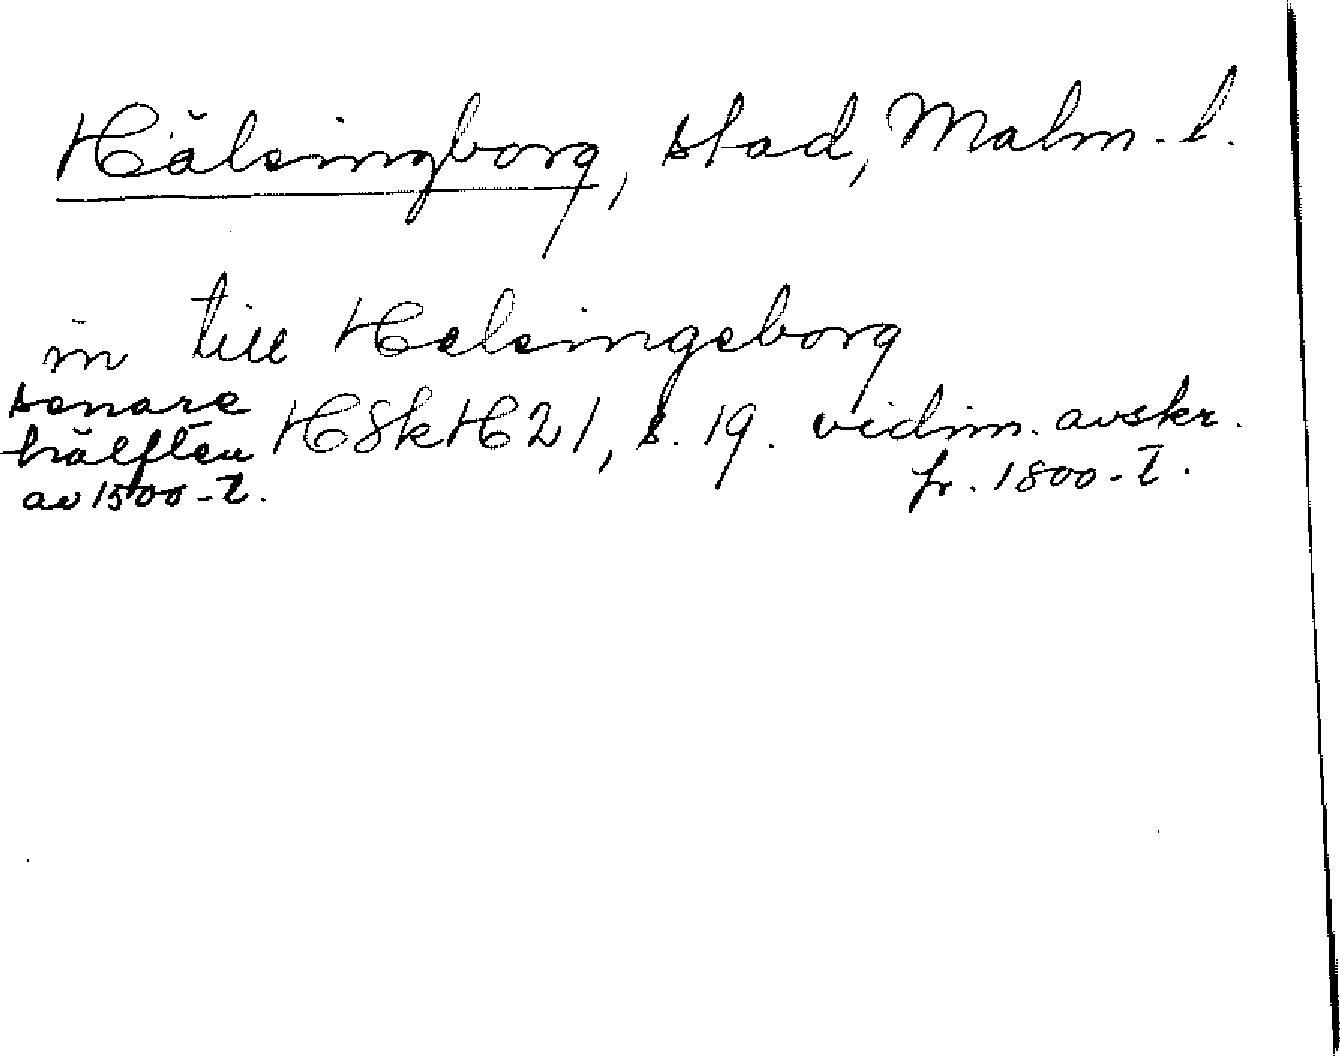 Hälsingborg, stad, Malm. l.
in till Helsingeborg
senare hälften av 1500-t.
HSkH21, s. 19. vidim. avskr. fr. 1800-t.